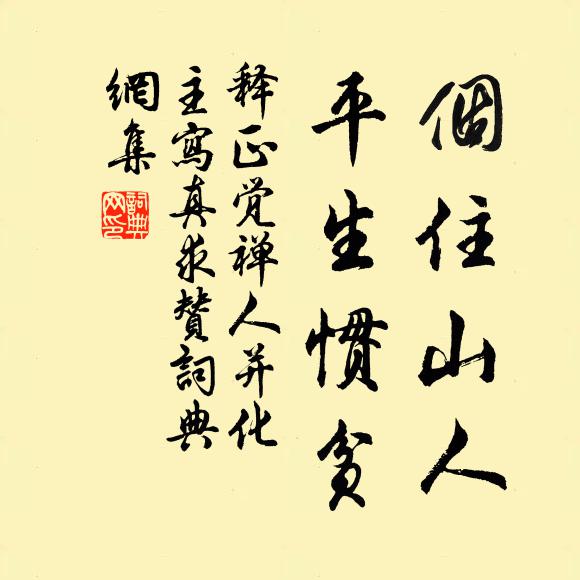 個住山人
平生慣貧
释正觉禅人并化
主寫真求贊詞典
網集
詞典
网印